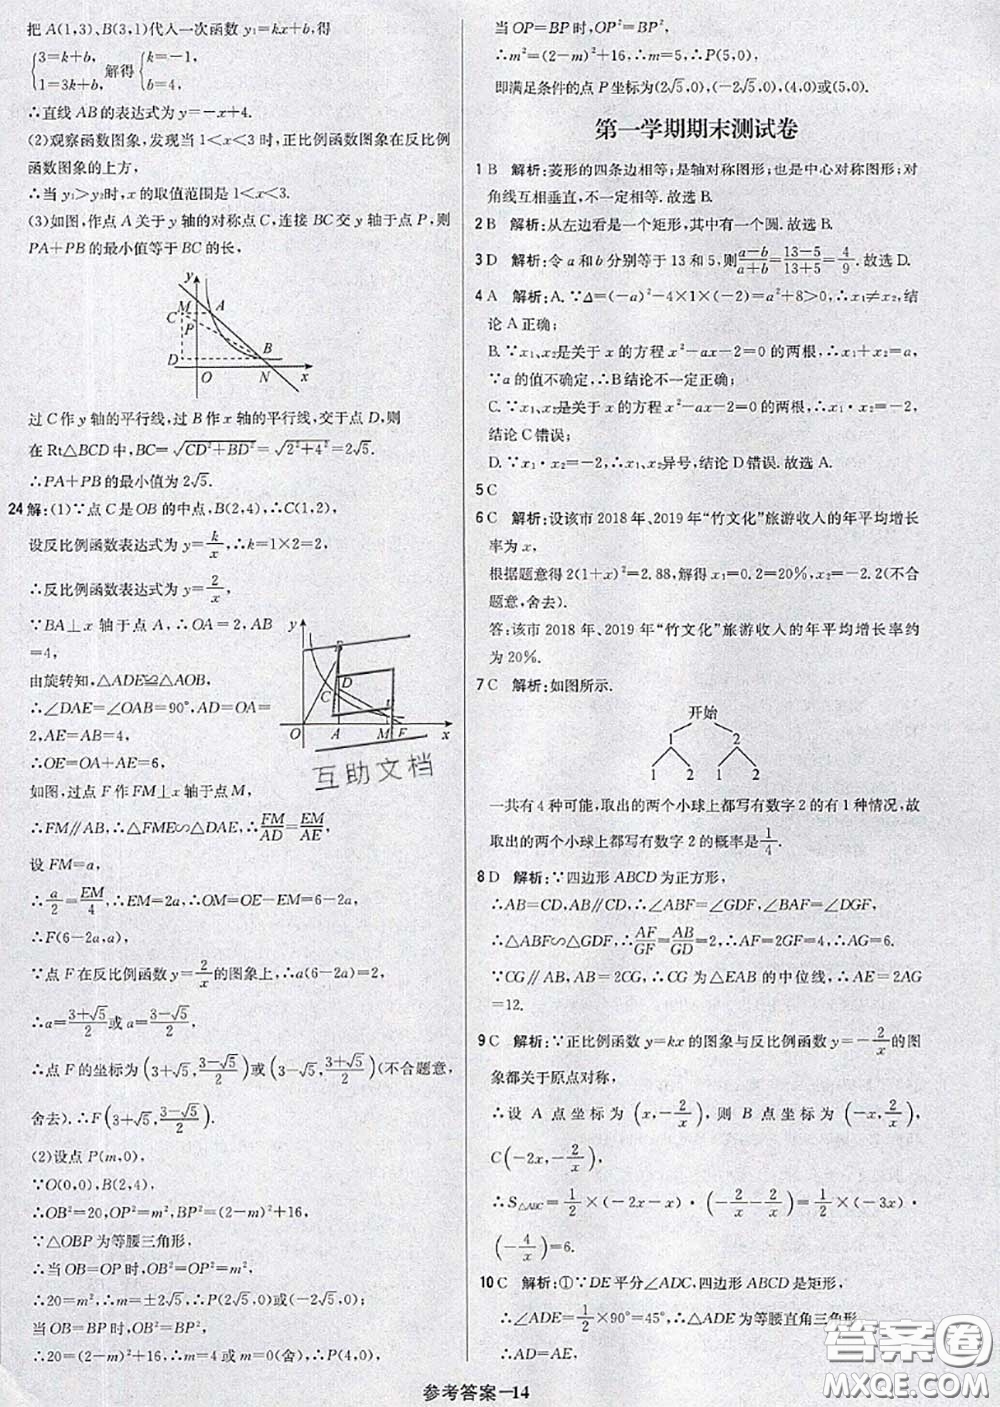 把 A(1,3)、B(3,1)代入一次函数 y₁=kx+b,得
{3=k+b, 1=3k+b, 解得 {k=-1, b=4,
∴直线 AB 的表达式为 y=-x+4.
(2)观察函数图象,发现当 1<x<3 时,正比例函数图象在反比例
函数图象的上方,
∴当 y₁>y₂时,x 的取值范围是 1<x<3.
(3)如图,作点 A 关于 y 轴的对称点 C,连接 BC 交 y 轴于点 P,则
PA+PB 的最小值等于 BC 的长,
y
M A
C
P
D B
O N x
过 C 作 y 轴的平行线,过 B 作 x 轴的平行线,交于点 D,则
在 Rt△BCD 中,BC=√(CD²+BD²)=√(2²+4²)=2√5.
∴PA+PB 的最小值为 2√5.
24 解:(1)∵点 C 是 OB 的中点,B(2,4),∴C(1,2),
设反比例函数表达式为 y=k/x,∴k=1×2=2,
∴反比例函数表达式为 y=2/x.
∵BA⊥x 轴于点 A,∴OA=2,AB
=4,
由旋转知,△ADE≌△AOB,
∴∠DAE=∠OAB=90°,AD=OA=
2,AE=AB=4,
∴OE=OA+AE=6,
如图,过点 F 作 FM⊥x 轴于点 M,
y
C
O A M F x
互助文档
∴FM∥AB,∴△FME∽△DAE,∴FM/AD=EM/AE,
设 FM=a,
∴a/2=EM/4,∴EM=2a,∴OM=OE-EM=6-2a,
∴F(6-2a,a),
∵点 F 在反比例函数 y=2/x 的图象上,∴a(6-2a)=2,
∴a=(3+√5)/2 或 a=(3-√5)/2,
∴点 F 的坐标为(3+√5,(3-√5)/2)或(3-√5,(3+√5)/2)(不合题意,
舍去).∴F(3+√5,(3-√5)/2).
(2)设点 P(m,0),
∵O(0,0),B(2,4),
∴OB²=20,OP²=m²,BP²=(2-m)²+16,
∵△OBP 为等腰三角形,
∴当 OB=OP 时,OB²=OP²=m²,
∴20=m²,∴m=±2√5,∴P(2√5,0)或(-2√5,0);
当 OB=BP 时,OB²=BP²,
∴20=(2-m)²+16,∴m=4 或 m=0(舍),∴P(4,0),
当 OP=BP 时,OP²=BP²,
∴m²=(2-m)²+16,∴m=5,∴P(5,0),
即满足条件的点 P 坐标为(2√5,0),(-2√5,0),(4,0)或(5,0).
第一学期期末测试卷
1 B 解析:菱形的四条边相等;是轴对称图形;也是中心对称图形;对
角线互相垂直,不一定相等.故选 B.
2 B 解析:从左边看是一个矩形,其中有一个圆.故选 B.
3 D 解析:令 a 和 b 分别等于 13 和 5,则(a-b)/(a+b)=(13-5)/(13+5)=4/9.故选 D.
4 A 解析:A.∵Δ=(-a)²-4×1×(-2)=a²+8>0,∴x₁≠x₂,结
论 A 正确;
B.∵x₁、x₂是关于 x 的方程 x²-ax-2=0 的两根,∴x₁+x₂=a,
∵a 的值不确定,∴B 结论不一定正确;
C.∵x₁、x₂是关于 x 的方程 x²-ax-2=0 的两根,∴x₁·x₂=-2,
结论 C 错误;
D.∵x₁·x₂=-2,∴x₁、x₂异号,结论 D 错误.故选 A.
5 C
6 C 解析:设该市 2018 年、2019 年“竹文化”旅游收入的年平均增长
率为 x,
根据题意得 2(1+x)²=2.88,解得 x₁=0.2=20%,x₂=-2.2(不合
题意,舍去).
答:该市 2018 年、2019 年“竹文化”旅游收入的年平均增长率约
为 20%.
7 C 解析:如图所示.
开始
1 2
1 2 1 2
一共有 4 种可能,取出的两个小球上都写有数字 2 的有 1 种情况,故
取出的两个小球上都写有数字 2 的概率是1/4.
8 D 解析:∵四边形 ABCD 为正方形,
∴AB=CD,AB∥CD,∴∠ABF=∠GDF,∠BAF=∠DGF,
∴△ABF∽△GDF,∴AF/GF=AB/GD=2,∴AF=2GF=4,∴AG=6.
∵CG∥AB,AB=2CG,∴CG 为△EAB 的中位线,∴AE=2AG
=12.
9 C 解析:∵正比例函数 y=kx 的图象与反比例函数 y=-2/x 的图
象都关于原点对称,
∴设 A 点坐标为(x,-2/x),则 B 点坐标为(-x,2/x),
C(-2x,-2/x),
∴S△ABC=1/2×(-2x-x)·(-2/x-2/x)=1/2×(-3x)·
(-4/x)=6.
10 C 解析:①∵DE 平分∠ADC,四边形 ABCD 是矩形,
∴∠ADE=1/2×90°=45°,∴△ADE 为等腰直角三角形,
∴AD=AE,
参考答案—14
答案圈
MXQE.COM